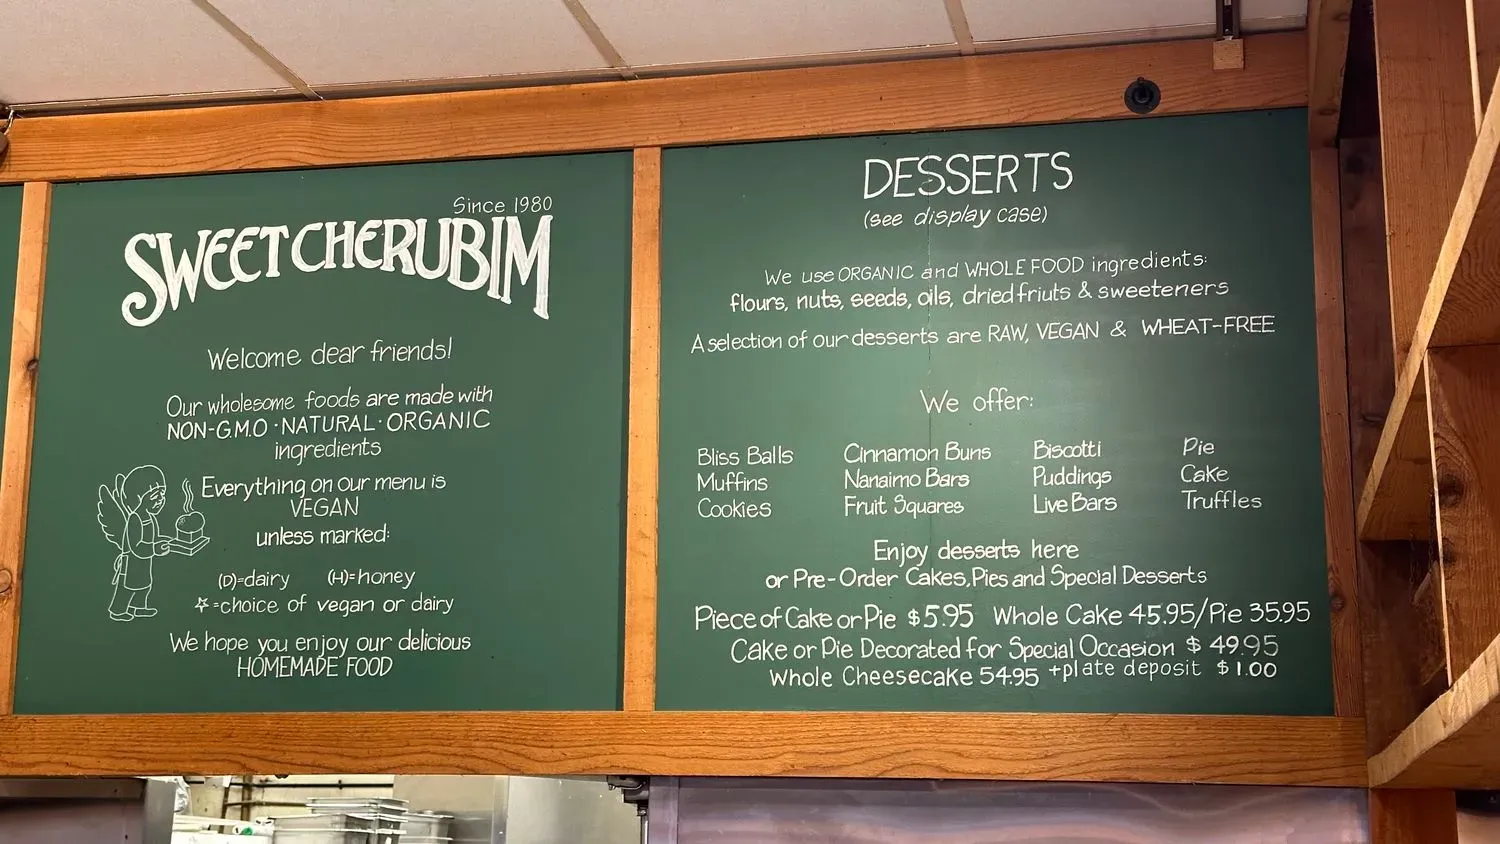 Since 1980
SWEET CHERUBIM
Welcome dear friends!
Our wholesome foods are made with
NON-G.M.O · NATURAL · ORGANIC
ingredients
Everything on our menu is
VEGAN
unless marked:
(D)=dairy (H)=honey
☆=choice of vegan or dairy
We hope you enjoy our delicious
HOMEMADE FOOD
DESSERTS
(see display case)
We use ORGANIC and WHOLE FOOD ingredients:
flours, nuts, seeds, oils, dried friuts & sweeteners
A selection of our desserts are RAW, VEGAN & WHEAT-FREE
We offer:
Bliss Balls Cinnamon Buns Biscotti Pie
Muffins Nanaimo Bars Puddings Cake
Cookies Fruit Squares Live Bars Truffles
Enjoy desserts here
or Pre-Order Cakes, Pies and Special Desserts
Piece of Cake or Pie $5.95 Whole Cake 45.95/Pie 35.95
Cake or Pie Decorated for Special Occasion $ 49.95
Whole Cheesecake 54.95 +plate deposit $1.00